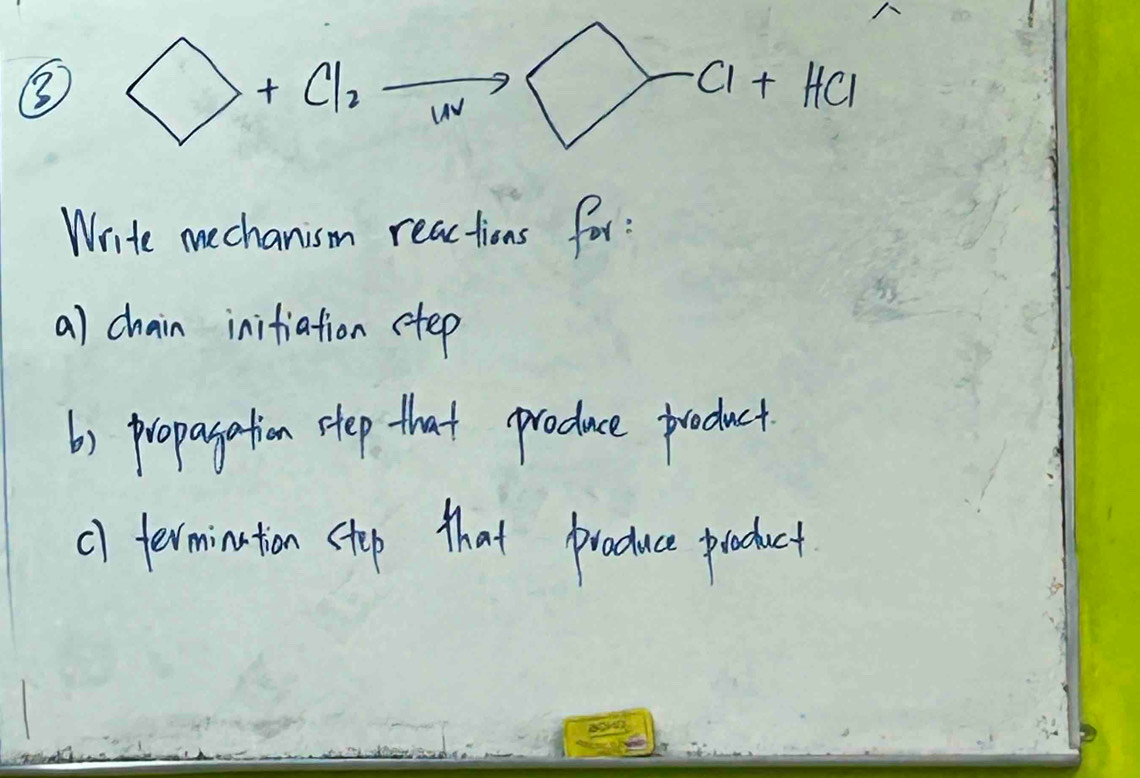 ③ + Cl₂ → Cl + HCl
uv
Write mechanism reactions for:
a) chain initiation step
b) propagation step that produce product.
c) termination step that produce product.